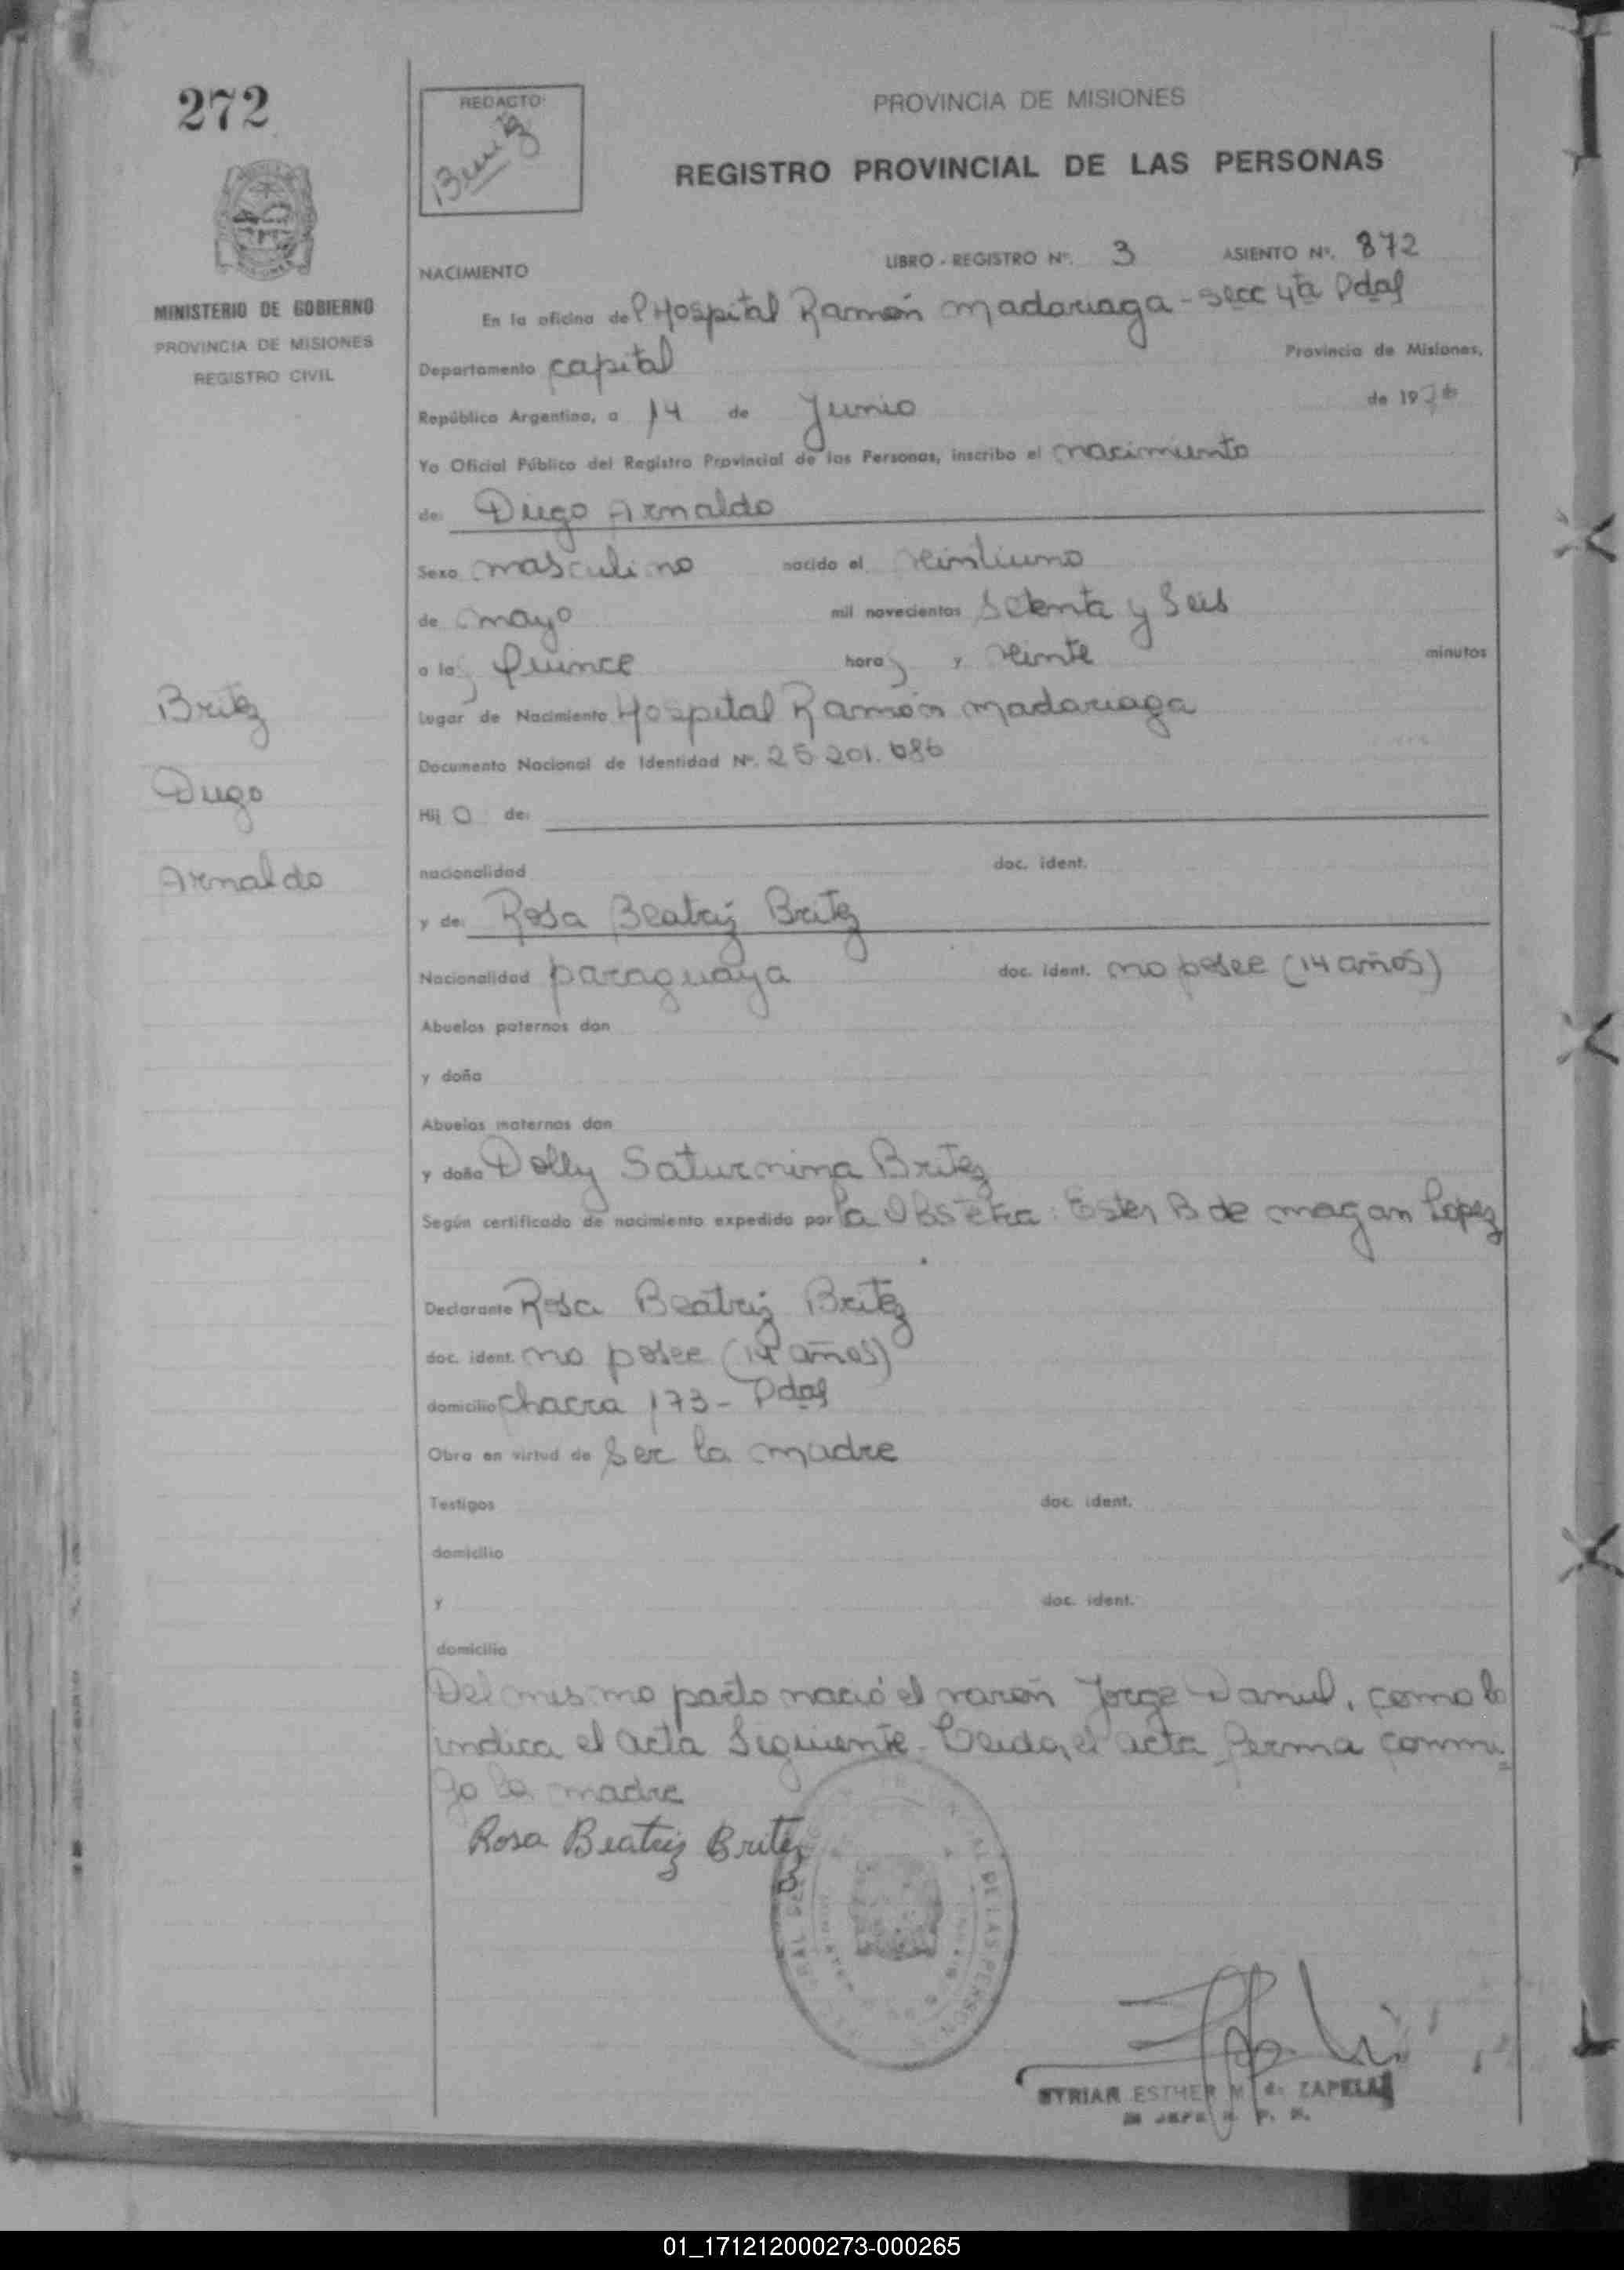 272
REDACTO:
PROVINCIA DE MISIONES
REGISTRO PROVINCIAL DE LAS PERSONAS
MINISTERIO DE GOBIERNO
PROVINCIA DE MISIONES
REGISTRO CIVIL
NACIMIENTO
LIBRO - REGISTRO Nº. 3 ASIENTO Nº. 872
En la oficina del Hospital Ramón Madariaga - Secc 4ta Pdas
Departamento Capital Provincia de Misiones,
República Argentina, a 14 de Junio de 1976
Yo Oficial Público del Registro Provincial de las Personas, inscribo el nacimiento
de: Diego Arnaldo
Sexo masculino nacido el veintiuno
de mayo mil novecientos Setenta y Seis
a las quince horas y veinte minutos
Lugar de Nacimiento Hospital Ramón Madariaga
Documento Nacional de Identidad Nº. 25.201.686
Britez
Diego
Arnaldo
Hij o de:
nacionalidad doc. ident.
y de: Rosa Beatriz Britez
Nacionalidad paraguaya doc. ident. no posee (14 años)
Abuelos paternos don
y doña
Abuelos maternos don
y doña Dolly Saturnina Britez
Según certificado de nacimiento expedido por la Obstetra: Ester B de Magan Lopez
Declarante Rosa Beatriz Britez
doc. ident. no posee (14 años)
domicilio chacra 173 - Pdas
Obra en virtud de Ser la madre
Testigos doc. ident.
domicilio
y doc. ident.
domicilio
Del mismo parto nació el varón Jorge Daniel, como lo
indica el acta Siguiente - Leida el acta firma conmi=
go la madre
Rosa Beatriz Britez
DE LAS PERSON
ESTHER M. de ZAPELA
01_171212000273-000265